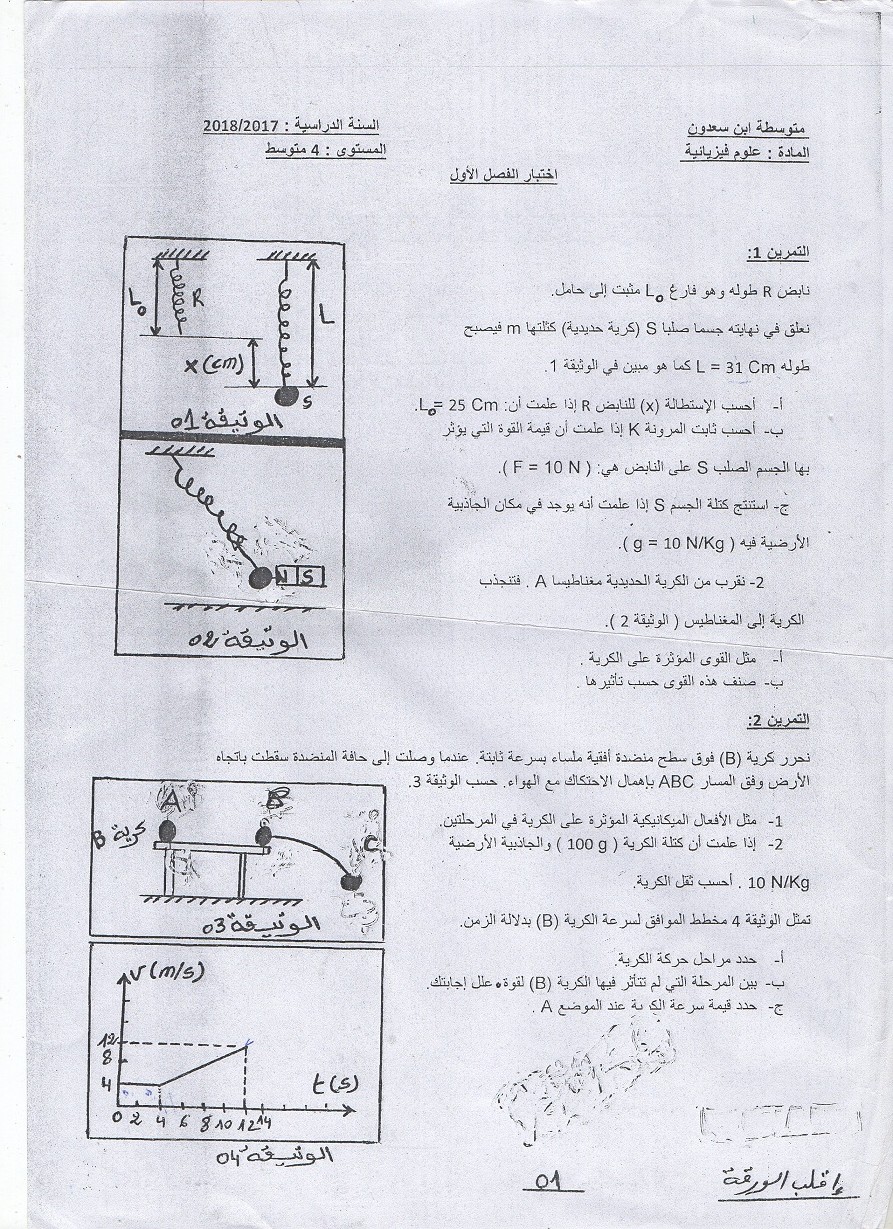 متوسطة ابن سعدون
السنة الدراسية : 2018/2017
المادة : علوم فيزيائية
المستوى : 4 متوسط
اختبار الفصل الأول
التمرين 1:
نابض R طوله وهو فارغ L₀ مثبت إلى حامل.
نعلق في نهايته جسما صلبا S (كرية حديدية) كتلتها m فيصبح
طوله L = 31 Cm كما هو مبين في الوثيقة 1.
أ- أحسب الإستطالة (x) للنابض R إذا علمت أن: L₀= 25 Cm.
ب- أحسب ثابت المرونة K إذا علمت أن قيمة القوة التي يؤثر
بها الجسم الصلب S على النابض هي: ( F = 10 N ).
ج- استنتج كتلة الجسم S إذا علمت أنه يوجد في مكان الجاذبية
الأرضية فيه ( g = 10 N/Kg ).
2- نقرب من الكرية الحديدية مغناطيسا A . فتنجذب
الكرية إلى المغناطيس ( الوثيقة 2 ).
أ- مثل القوى المؤثرة على الكرية .
ب- صنف هذه القوى حسب تأثيرها .
L₀
R
L
x (cm)
S
الوثيقة 01
N S
الوثيقة 02
التمرين 2:
نحرر كرية (B) فوق سطح منضدة أفقية ملساء بسرعة ثابتة. عندما وصلت إلى حافة المنضدة سقطت باتجاه
الأرض وفق المسار ABC بإهمال الاحتكاك مع الهواء. حسب الوثيقة 3.
1- مثل الأفعال الميكانيكية المؤثرة على الكرية في المرحلتين.
2- إذا علمت أن كتلة الكرية ( 100 g ) والجاذبية الأرضية
10 N/Kg . أحسب ثقل الكرية.
تمثل الوثيقة 4 مخطط الموافق لسرعة الكرية (B) بدلالة الزمن.
أ- حدد مراحل حركة الكرية.
ب- بين المرحلة التي لم تتأثر فيها الكرية (B) لقوة. علل إجابتك.
ج- حدد قيمة سرعة الكرية عند الموضع A .
A
B
C
كرية B
الوثيقة 03
V (m/s)
12
8
4
t (s)
0 2 4 6 8 10 12 14
الوثيقة 04
01
إقلب الورقة